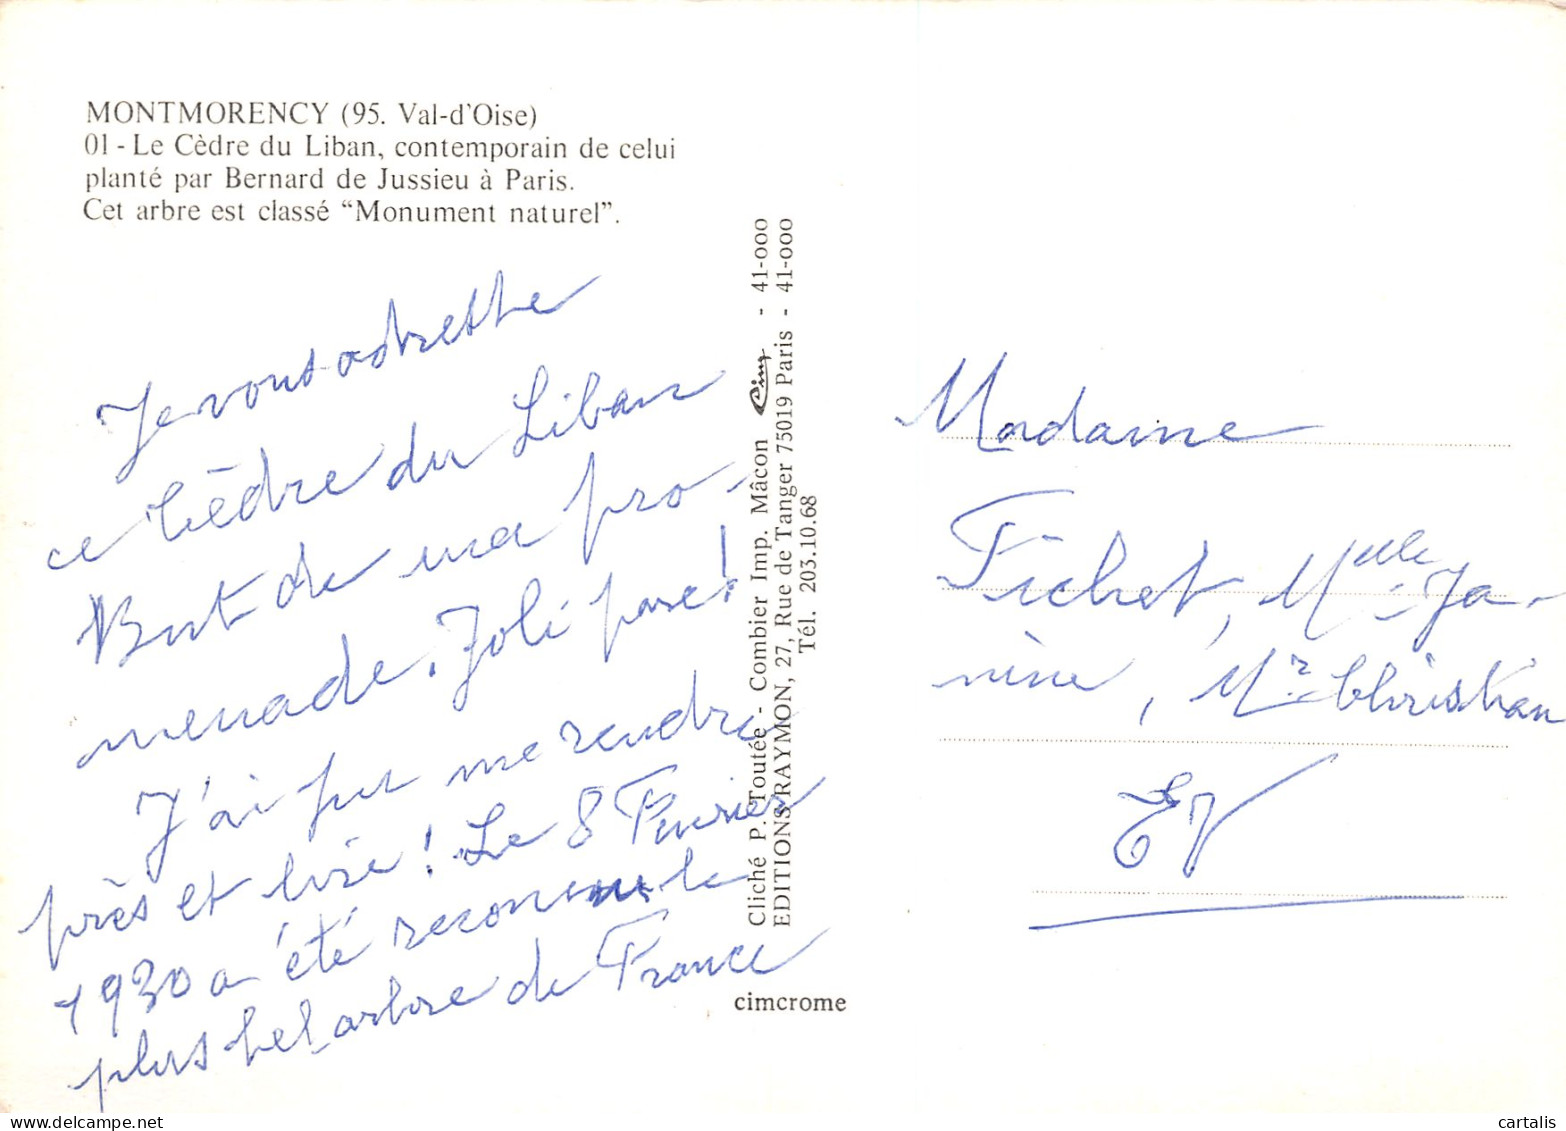 MONTMORENCY (95. Val-d'Oise)
01 - Le Cèdre du Liban, contemporain de celui
planté par Bernard de Jussieu à Paris.
Cet arbre est classé “Monument naturel”.
Je vous adresse
ce Cèdre du Liban
But de ma pro-
menade. Joli parc!
J'ai pu me rendre
près et lire! Le 8 Février
1930 a été reconnu le
plus bel arbre de France
Cliché P. Toutée - Combier Imp. Mâcon Cim - 41-000
EDITIONS RAYMON, 27, Rue de Tanger 75019 Paris - 41-000
Tél. 203.10.68
cimcrome
Madame
Fichet, Melle Ja-
nine, Mr Christian
EV
cartalis
delcampe.net